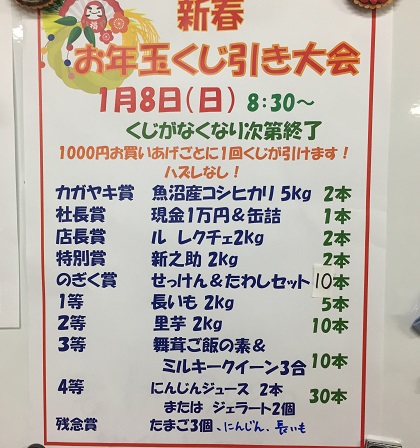 新春
お年玉くじ引き大会
1月8日(日) 8:30~
くじがなくなり次第終了
1000円お買いあげごとに1回くじが引けます！
ハズレなし！
カガヤキ賞 魚沼産コシヒカリ 5kg 2本
社長賞 現金1万円＆缶詰 1本
店長賞 ル レクチェ2kg 2本
特別賞 新之助 2kg 2本
のぎく賞 せっけん＆たわしセット 10本
1等 長いも 2kg 5本
2等 里芋 2kg 10本
3等 舞茸ご飯の素＆
ミルキークイーン3合 10本
4等 にんじんジュース 2本 30本
または ジェラート2個
残念賞 たまご3個、にんじん、長いも